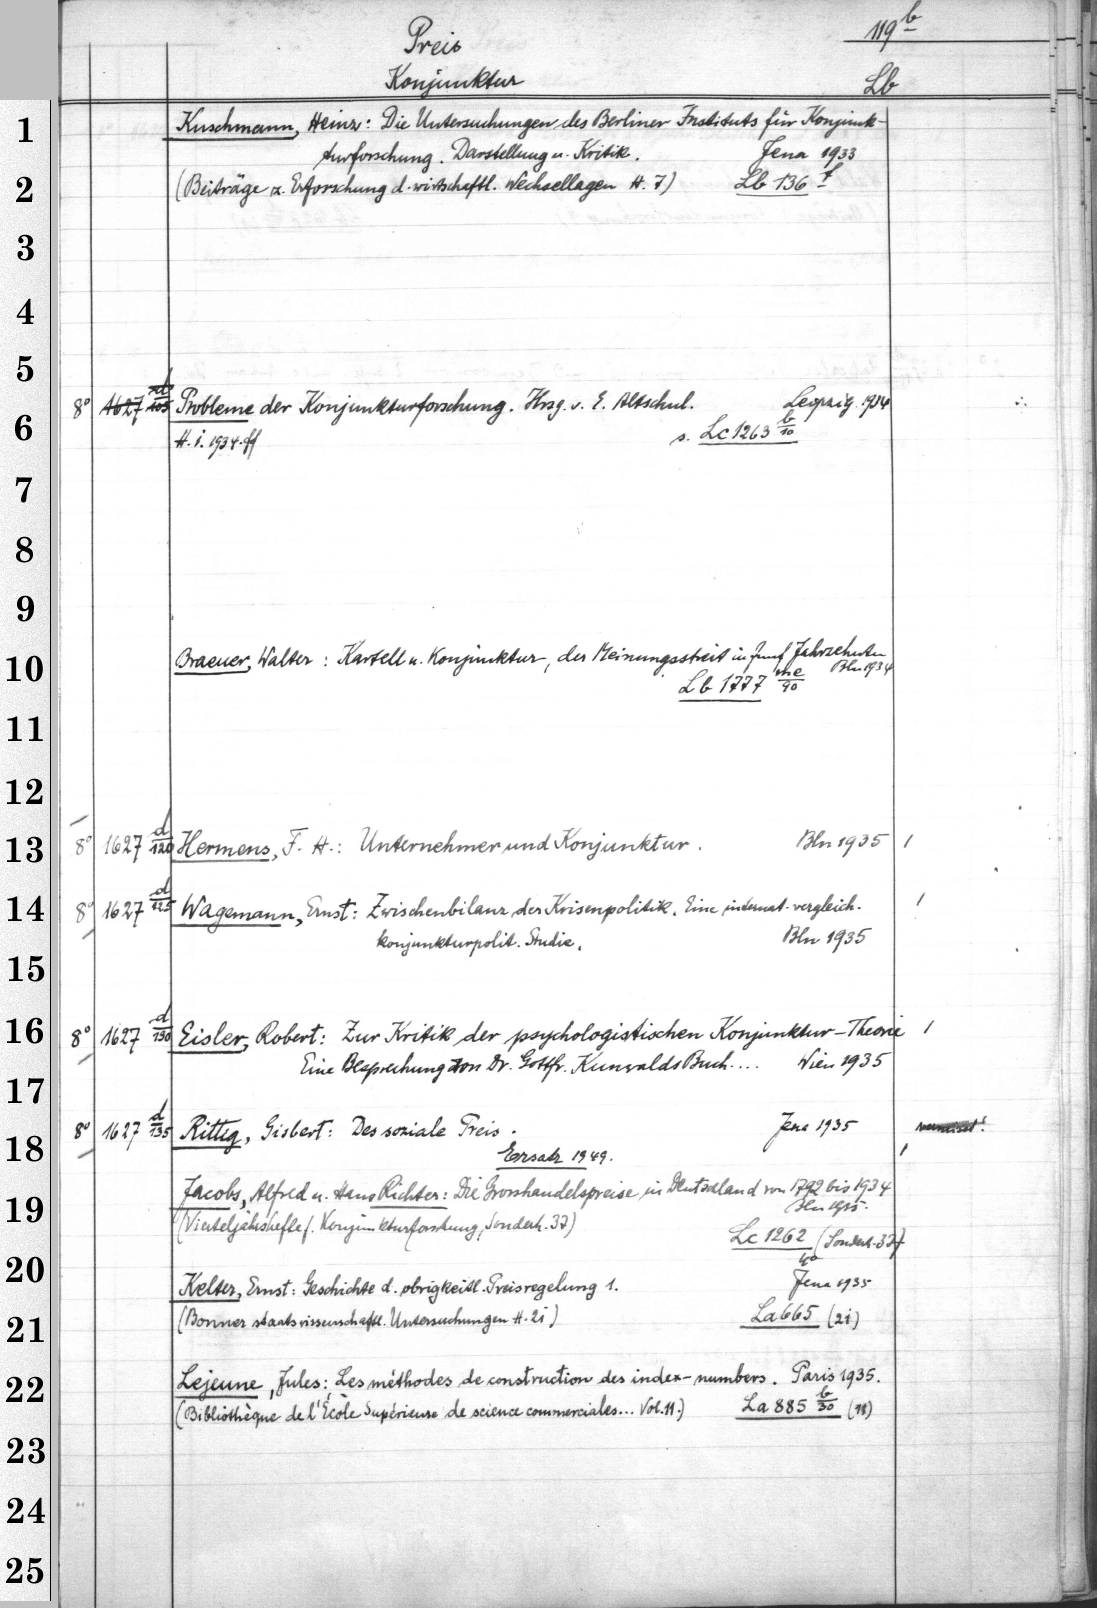 119 b
Preis
Konjunktur
Lb
1
Kuschmann, Heinz: Die Untersuchungen des Berliner Instituts für Konjunk-
turforschung. Darstellung u. Kritik. Jena 1933
2
(Beiträge z. Erforschung d. wirtschaftl. Wechsellagen H. 7) Lb 136 f
3
4
5
8° 1627 d/105 Probleme der Konjunkturforschung. Hrsg. v. E. Altschul. Leipzig. 1934
6
H. 1. 1934. ff s. Lc 1263 b/10
7
8
9
10
Braeuer, Walter: Kartell u. Konjunktur, der Meinungsstreit in fünf Jahrzehnten
Bln 1934
Lb 1777 me/90
11
12
13
8° 1627 d/120 Hermens, F. H.: Unternehmer und Konjunktur. Bln 1935
14
8° 1627 d/125 Wagemann, Ernst: Zwischenbilanz der Krisenpolitik. Eine internat. vergleich.
konjunkturpolit. Studie. Bln 1935
15
16
8° 1627 d/130 Eisler, Robert: Zur Kritik der psychologistischen Konjunktur-Theorie
Eine Besprechung von Dr. Gottfr. Kunwalds Buch.... Wien 1935
17
8° 1627 d/135 Rittig, Gisbert: Der soziale Preis. Jena 1935 vermisst!
18
Ersatz 1949.
Jacobs, Alfred u. Hans Richter: Die Grosshandelspreise in Deutschland von 1792 bis 1934
Bln 1935.
19
(Vierteljahshefte f. Konjunkturforschung, Sonderh. 37)
Lc 1262/40 (Sonderh. 37)
20
Kelter, Ernst: Geschichte d. obrigkeitl. Preisregelung 1. Jena 1935
21
(Bonner staatswissenschaftl. Untersuchungen H. 21) La 665 (21)
22
Lejeune, Jules: Les méthodes de construction des index-numbers. Paris 1935.
(Bibliothèque de l'École Supérieure de science commerciales... Vol. 11.) La 885 b/30 (11)
23
24
25